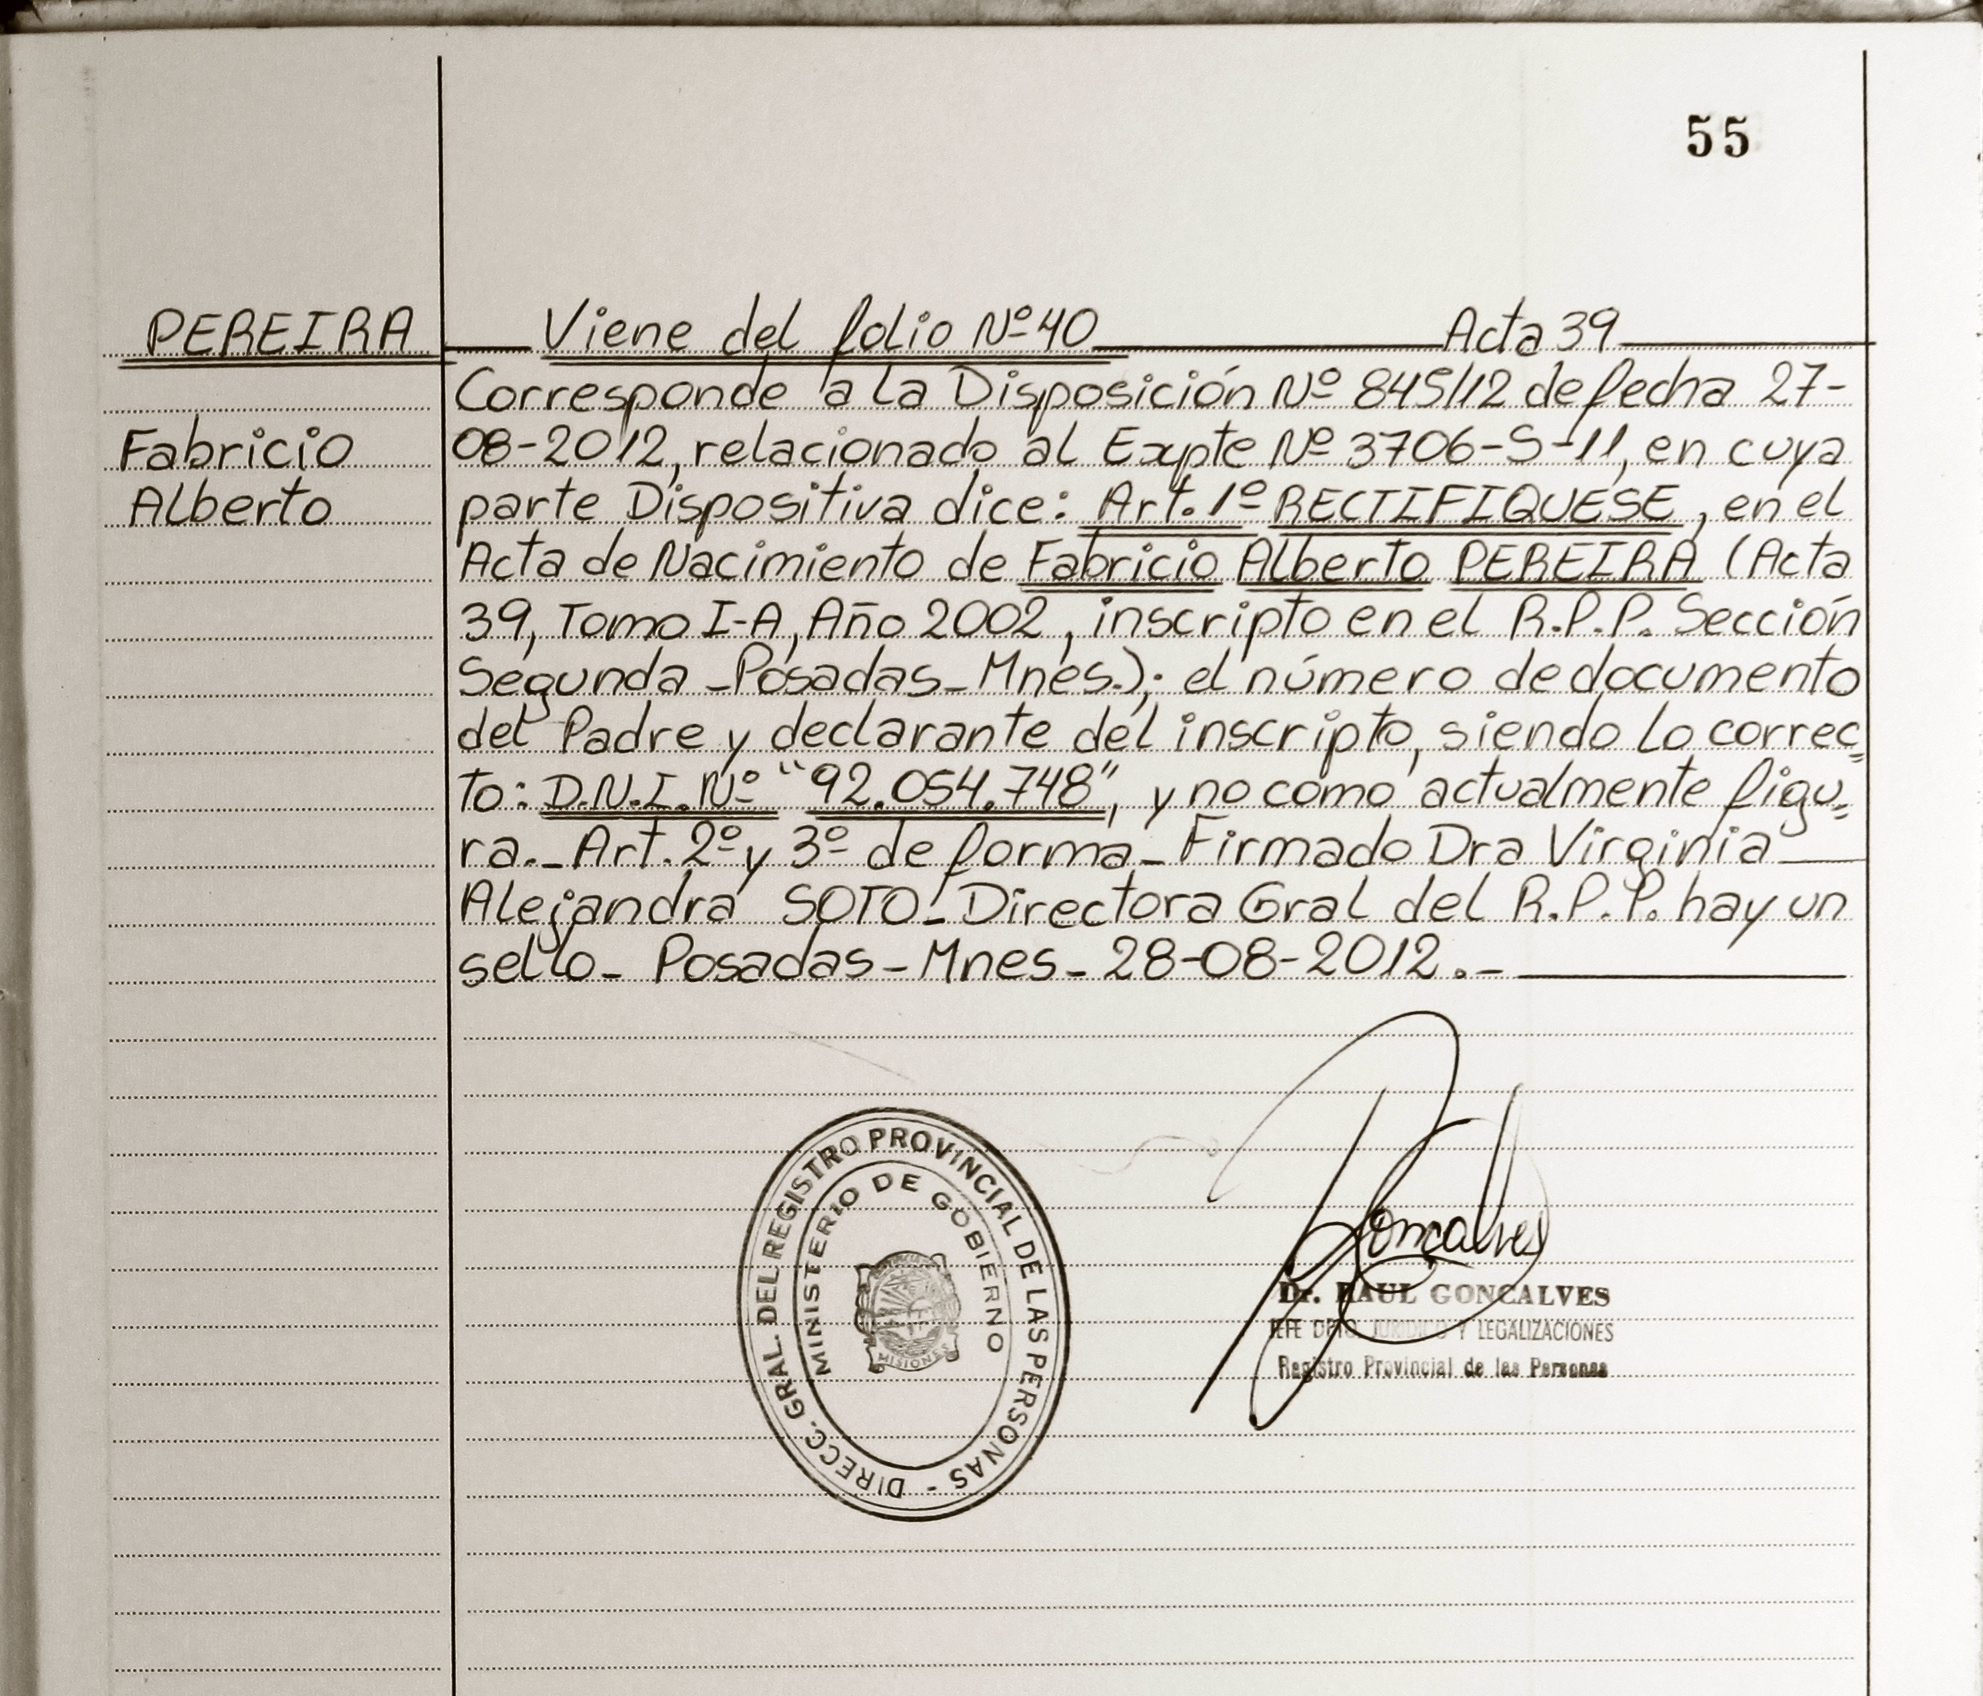 55
PEREIRA
Fabricio
Alberto
Viene del folio Nº 40 Acta 39
Corresponde a la Disposición Nº 845/12 de fecha 27-
08-2012, relacionado al Expte Nº 3706-S-11, en cuya
parte Dispositiva dice: Art. 1º RECTIFIQUESE, en el
Acta de Nacimiento de Fabricio Alberto PEREIRA (Acta
39, Tomo I-A, Año 2002, inscripto en el R.P.P. Sección
Segunda _Posadas_ Mnes.); el número de documento
del Padre y declarante del inscripto, siendo lo correc=
to: D.N.I. Nº "92.054.748", y no como actualmente figu=
ra._ Art. 2º y 3º de forma_ Firmado Dra Virginia
Alejandra SOTO_ Directora Gral del R.P.P. hay un
sello_ Posadas - Mnes - 28-08-2012._
DIRECC. GRAL. DEL REGISTRO PROVINCIAL DE LAS PERSONAS -
MINISTERIO DE GOBIERNO
MISIONES
Goncalves
Dr. RAUL GONCALVES
JEFE DPTO. JURIDICO Y LEGALIZACIONES
Registro Provincial de las Personas